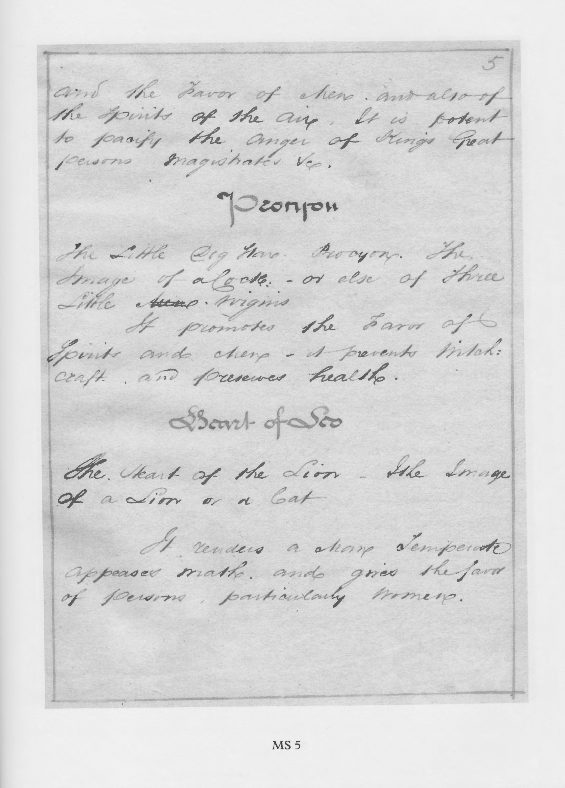 5
and the Favor of Men. and also of
the Spirits of the Air. It is potent
to pacify the anger of Kings Great
persons Magistrates &c.
Procyon
The Little Dog Star. Procyon. The
Image of a Cock. - or else of Three
Little Mens. Virgins
It promotes the Favor of
Spirits and Men - it prevents Witch:
craft. and preserves health.
Heart of Leo
The. Heart of the Lion - Is the Image
of a Lion or a Cat
It renders a Man Temperate
appeases wrath. and gives the favor
of persons. particularly Women.
MS 5